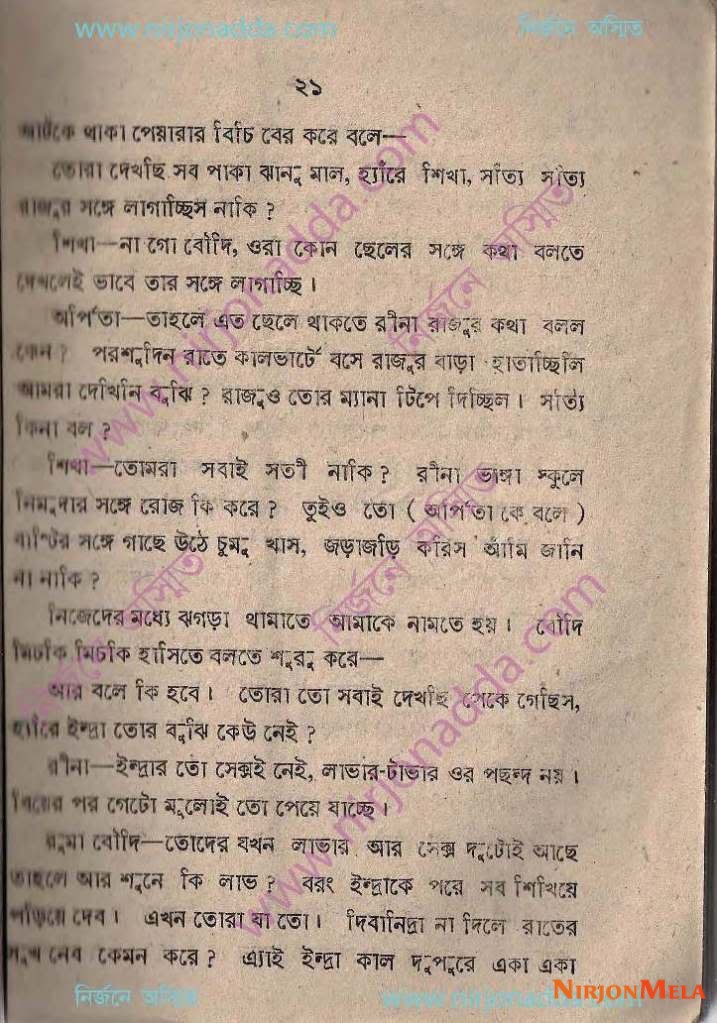 www.nirjonadda.com নির্জনে অস্মিত
২১
আটকে থাকা পেয়ারার বিচি বের করে বলে—
তোরা দেখছি সব পাকা ঝানু মাল, হ্যাঁরে শিখা, সত্যি সত্যি
রাজুর সঙ্গে লাগাচ্ছিস নাকি ?
শিখা—না গো বৌদি, ওরা কোন ছেলের সঙ্গে কথা বলতে
দেখলেই ভাবে তার সঙ্গে লাগাচ্ছি ।
অর্পিতা—তাহলে এত ছেলে থাকতে রীনা রাজুর কথা বলল
কেন ? পরশুদিন রাতে কালভার্টে বসে রাজুর বাড়া হাতাচ্ছিলি
আমরা দেখিনি বুঝি ? রাজুও তোর ম্যানা টিপে দিচ্ছিল । সত্যি
কিনা বল ?
শিখা—তোমরা সবাই সতী নাকি ? রীনা ভাঙ্গা স্কুলে
নিমুদার সঙ্গে রোজ কি করে ? তুইও তো ( অর্পিতা কে বলে )
বাপ্টির সঙ্গে গাছে উঠে চুমু খাস, জড়াজড়ি করিস আমি জানি
না নাকি ?
নিজেদের মধ্যে ঝগড়া থামাতে আমাকে নামতে হয় । বৌদি
মিচকি মিচকি হাসিতে বলতে শুরু করে—
আর বলে কি হবে । তোরা তো সবাই দেখছি পেকে গেছিস,
হ্যাঁরে ইন্দ্রা তোর বুঝি কেউ নেই ?
রীনা—ইন্দ্রার তো সেক্সই নেই, লাভার-টাভার ওর পছন্দ নয় ।
বিয়ের পর গেটো মুলোই তো পেয়ে যাচ্ছে ।
রুমা বৌদি—তোদের যখন লাভার আর সেক্স দুটোই আছে
তাহলে আর শুনে কি লাভ ? বরং ইন্দ্রাকে পরে সব শিখিয়ে
পড়িয়ে দেব । এখন তোরা যা তো । দিবানিদ্রা না দিলে রাতের
সুখ নেব কেমন করে ? এ্যাই ইন্দ্রা কাল দুপুরে একা একা
নির্জনে অস্মিত www.nirjonadda.com NIRJONMELA
www.nirjonadda.com
নির্জনে অস্মিত
www.nirjonadda.com
নির্জনে অস্মিত
নির্জনে অস্মিত